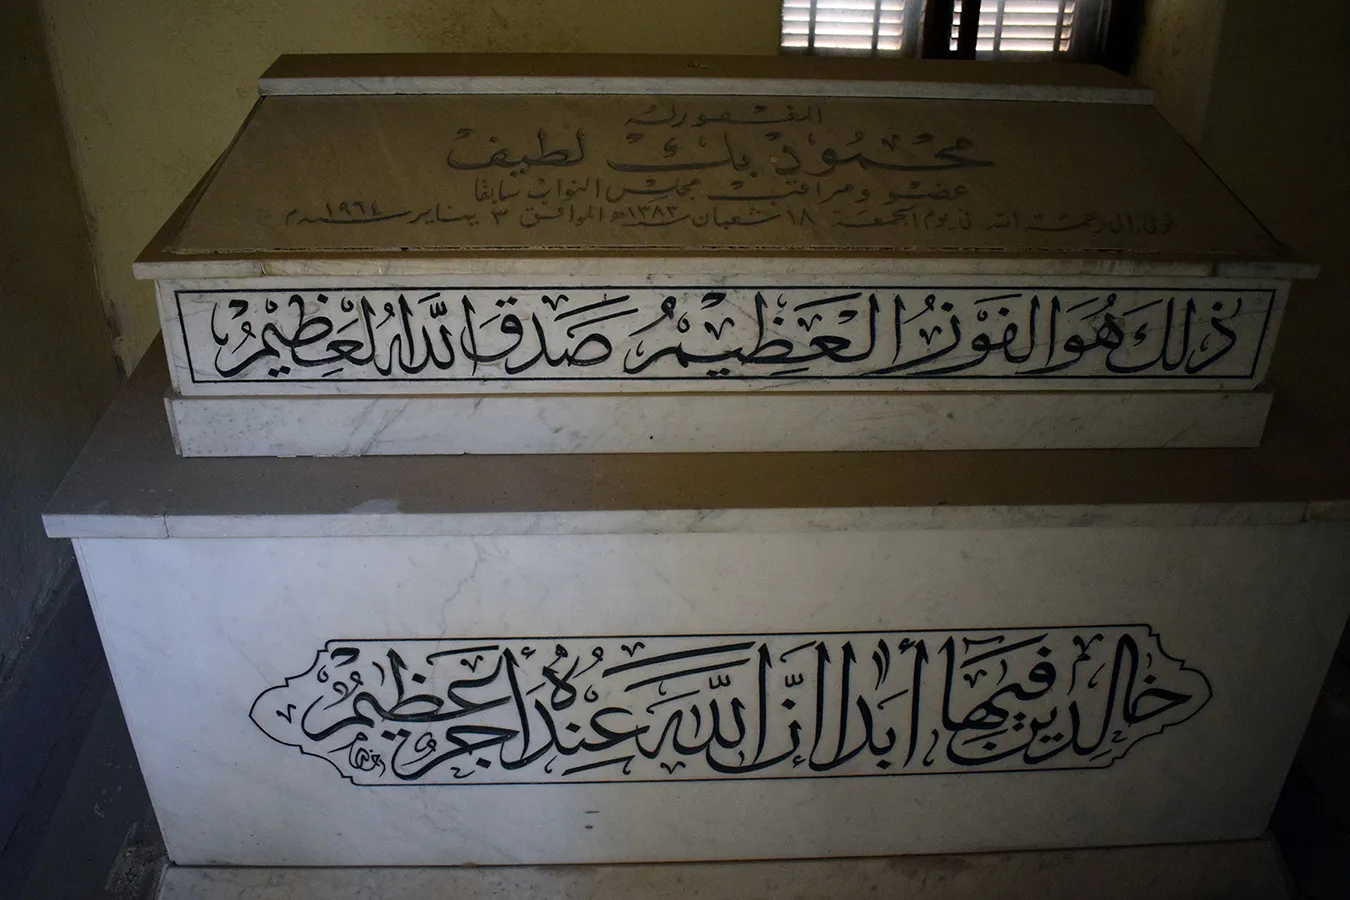 المغفور له
محمود بك لطيف
عضو ومراقب مجلس النواب سابقا
توفى إلى رحمة الله فى يوم الجمعة ١٨ شعبان سنة ١٣٨٣ه الموافق ٣ يناير سنة ١٩٦٤م
ذٰلِكَ هُوَ الفَوْزُ العَظِيمُ صَدَقَ اللَّهُ العَظِيمُ
خالدين فيها أبدا إنّ اللّه عنده أجر عظيم